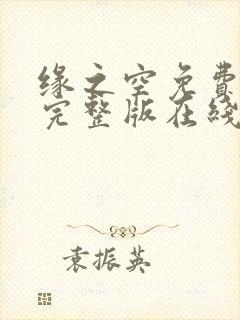 缘之空免费
完整版在綫
袁振英